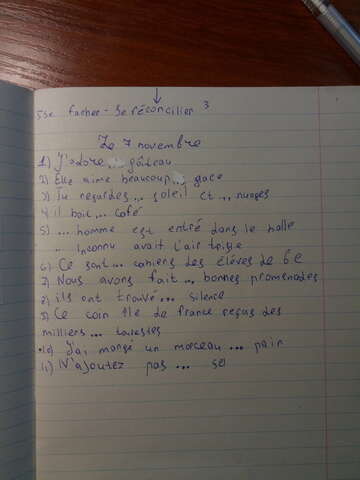 5) se facher - Se réconcilier 3
Le 7 novembre
1) J'adore ... gâteau
2) Elle aime beaucoup ... glace
3) Tu regardes ... soleil et ... nuages
4) il boit ... café
5) ... homme est entré dans le halle
" Inconnu avait l'air triste
6) Ce sont ... cahiers des élèves de 6e
7) Nous avons fait ... bonnes promenades
8) ils ont trouvé ... silence
9) Ce coin Ile de france reçus des
milliers ... touristes
10) J'ai mangé un morceau ... pain
11) N'ajoutez pas ... sel